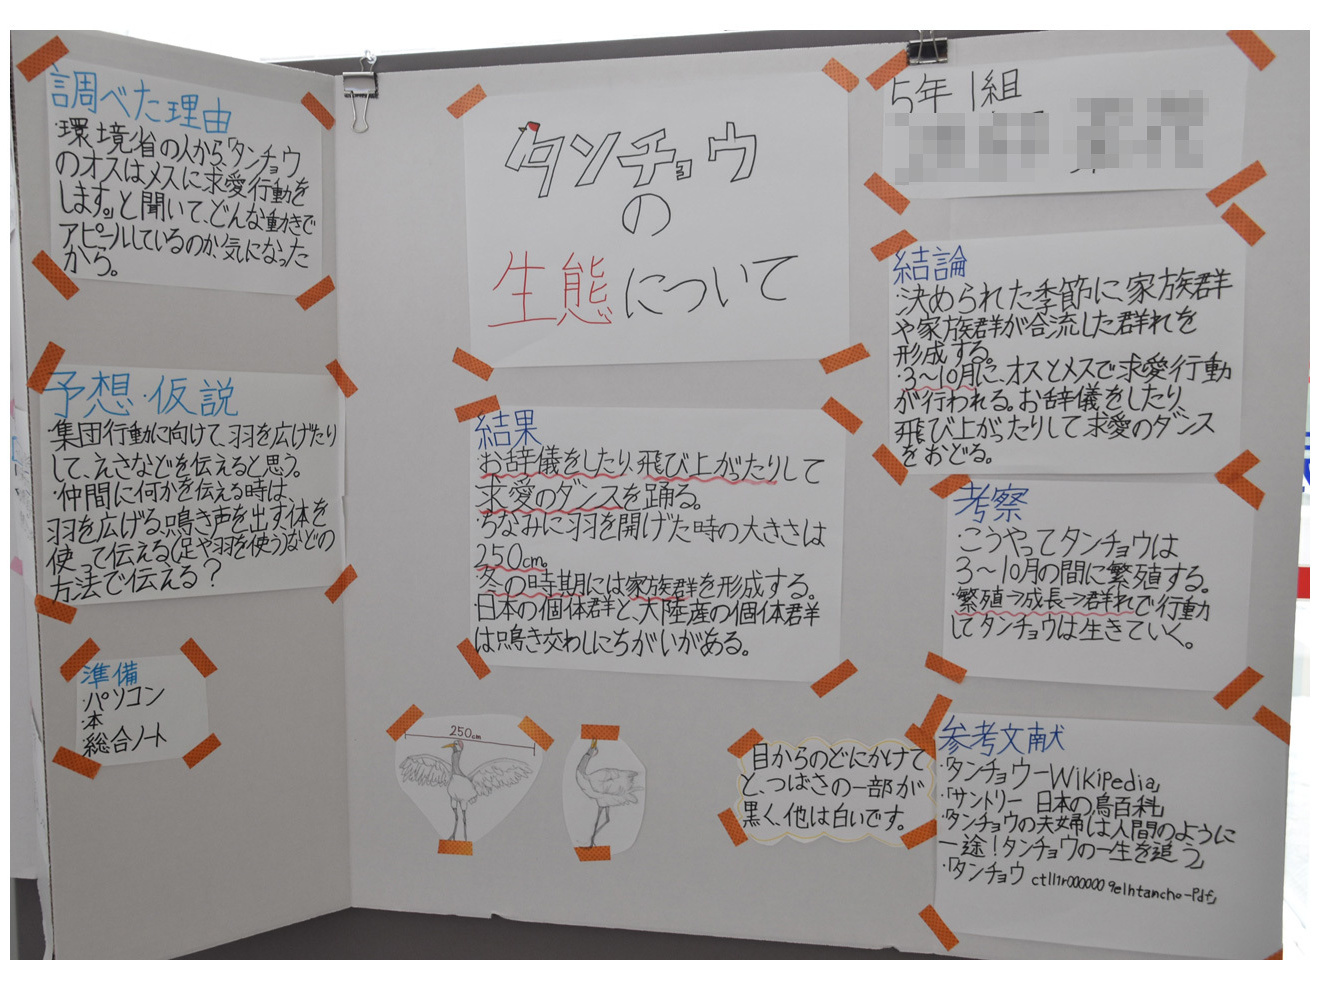 調べた理由
・環境省の人から「タンチョウ
のオスはメスに求愛行動を
します。」と聞いて、どんな動きで
アピールしているのか、気になった
から。
予想・仮説
・集団行動に向けて、羽を広げたり
して、えさなどを伝えると思う。
・仲間に何かを伝える時は、
羽を広げる、鳴き声を出す体を
使って伝える(足や羽を使う)などの
方法で伝える?
準備
・パソコン
・本
・総合ノート
タンチョウ
の
生態について
結果
・お辞儀をしたり、飛び上がったりして
求愛のダンスを踊る。
・ちなみに羽を開げた時の大きさは
250cm。
・冬の時期には家族群を形成する。
・日本の個体群と、大陸産の個体群
は鳴き交わしにちがいがある。
250cm
目からのどにかけて
と、つばさの一部が
黒く、他は白いです。
5年1組
結論
・決められた季節に家族群
や家族群が合流した群れを
形成する。
・3〜10月に、オスとメスで求愛行動
が行われる。お辞儀をしたり
飛び上がったりして求愛のダンス
をおどる。
考察
・こうやってタンチョウは
3〜10月の間に繁殖する。
・繁殖→成長→群れで行動
してタンチョウは生きていく。
参考文献
・「タンチョウーWikipedia」
・「サントリー 日本の鳥百科」
・「タンチョウの夫婦は人間のように
一途!タンチョウの一生を追う」
・「タンチョウ ctll1r000000 9elhtancho-Pdf」